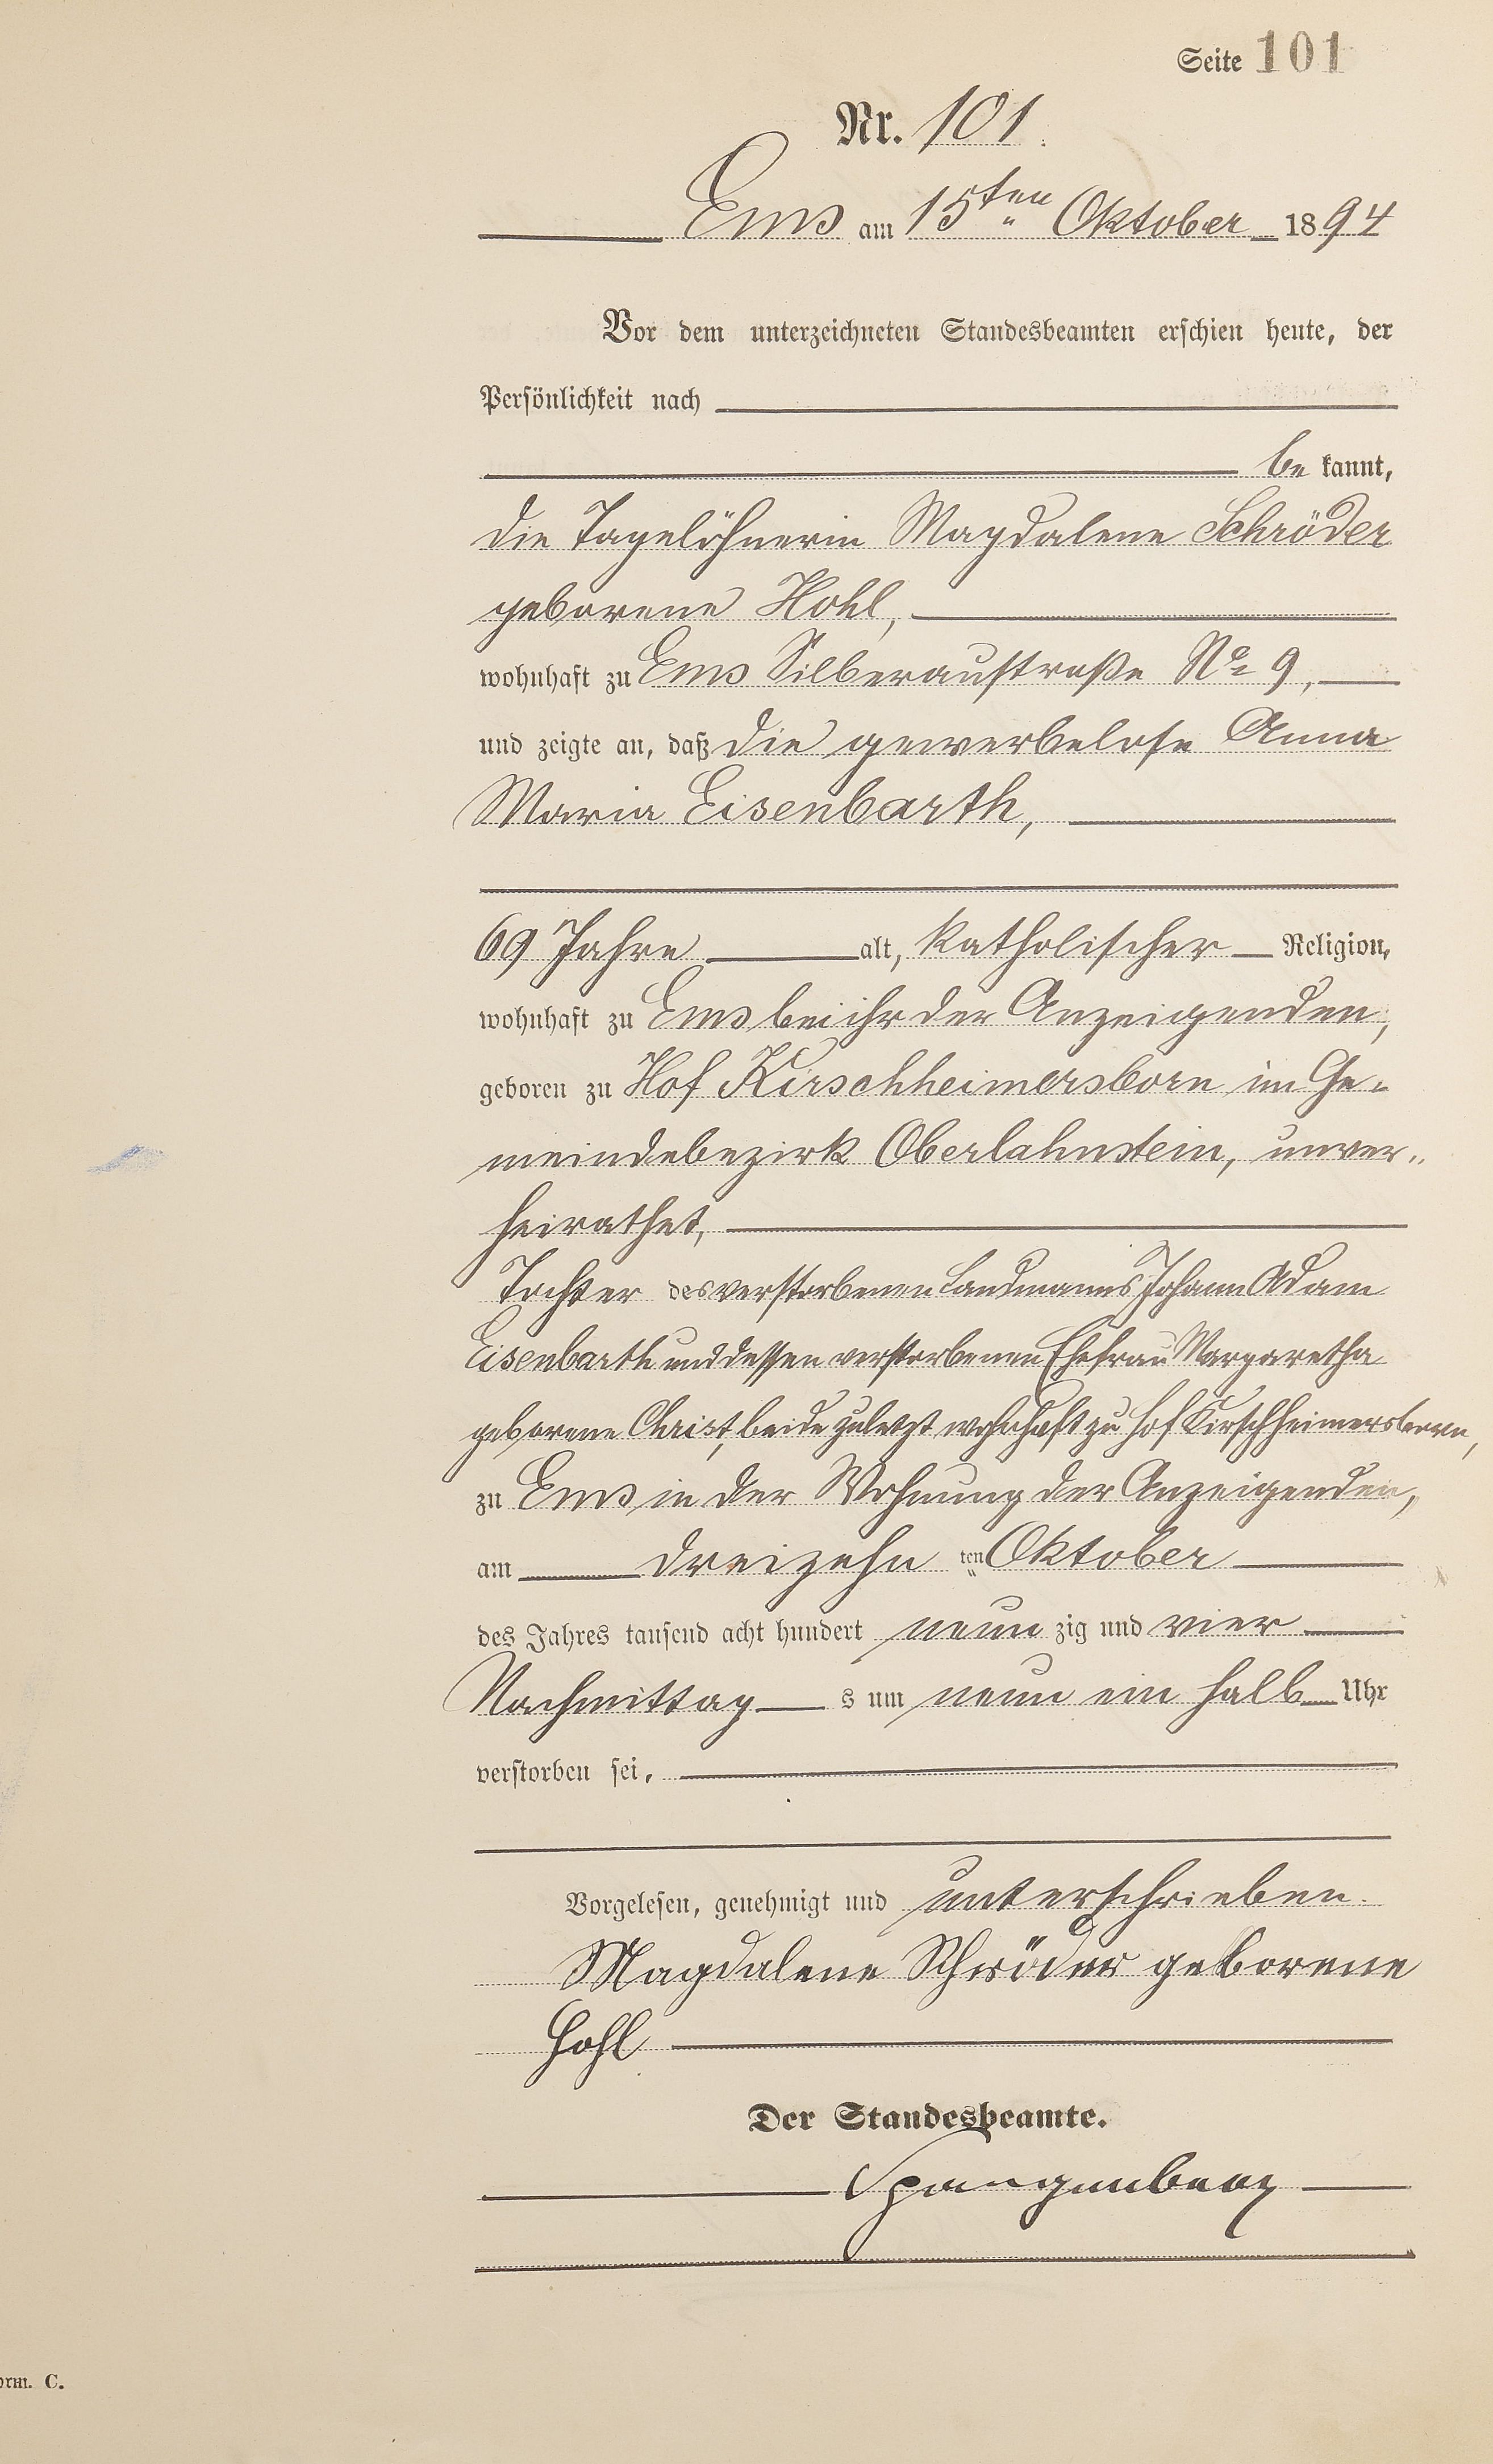 Seite 101
Nr. 101.
Ems am 15ten Oktober 1894
Vor dem unterzeichneten Standesbeamten erschien heute, der
Persönlichkeit nach
be kannt,
die Tagelöhnerin Magdalene Schröder
geborene Hohl,
wohnhaft zu Ems Silberaustraße No 9,
und zeigte an, daß die gewerbelose Anna
Maria Eisenbarth,
69 Jahre alt, katholischer Religion,
wohnhaft zu Ems bei ihr der Anzeigenden,
geboren zu Hof Kirschheimersborn im Ge-
meindebezirk Oberlahnstein, unver-
heirathet,
Tochter des verstorbenen Landmanns Johann Adam
Eisenbarth und dessen verstorbenen Ehefrau Margaretha
geborene Christ, beide zuletzt wohnhaft zu Hof Kirschheimersborn,
zu Ems in der Wohnung der Anzeigenden,
am dreizehn ten Oktober
des Jahres tausend acht hundert neun zig und vier
Nachmittag s um neun ein halb Uhr
verstorben sei.
Vorgelesen, genehmigt und unterschrieben.
Magdalene Schröder geborene
Hohl
Der Standesbeamte.
Spangenberg
orm. C.